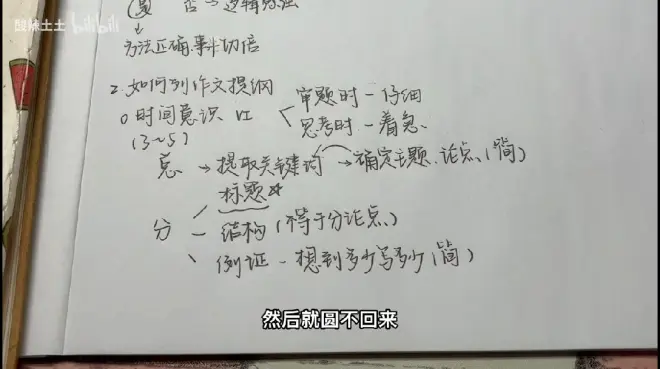 酸辣土土 bilibili
是 否→逻辑
方法正确,事半功倍
2.如何列作文提纲
时间意识 VS 审题时-仔细
(3~5) 思考时-着急
总→提取关键词→确定主题.论点(简)
标题☆
分 - 结构(不等于分论点)
例证-想到多少写多少(简)
然后就圆不回来